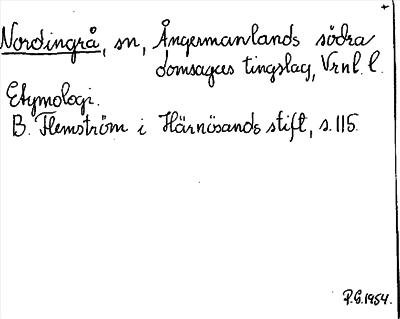 +
Nordingrå, sn, Ångermanlands södra
domsagas tingslag, Vrnl. l.
Etymologi.
B. Flemström i Härnösands stift, s. 115.
P.G. 1954.